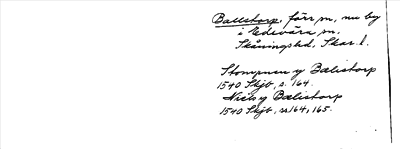 Ballstorp, förr sn, nu by
i Edsvära sn,
Skånings hd, Skar. l.
Stompnen y Bælistorp
1540 Skjb, s. 164.
Nils y Bælistorp
1540 Skjb, s. 164, 165.